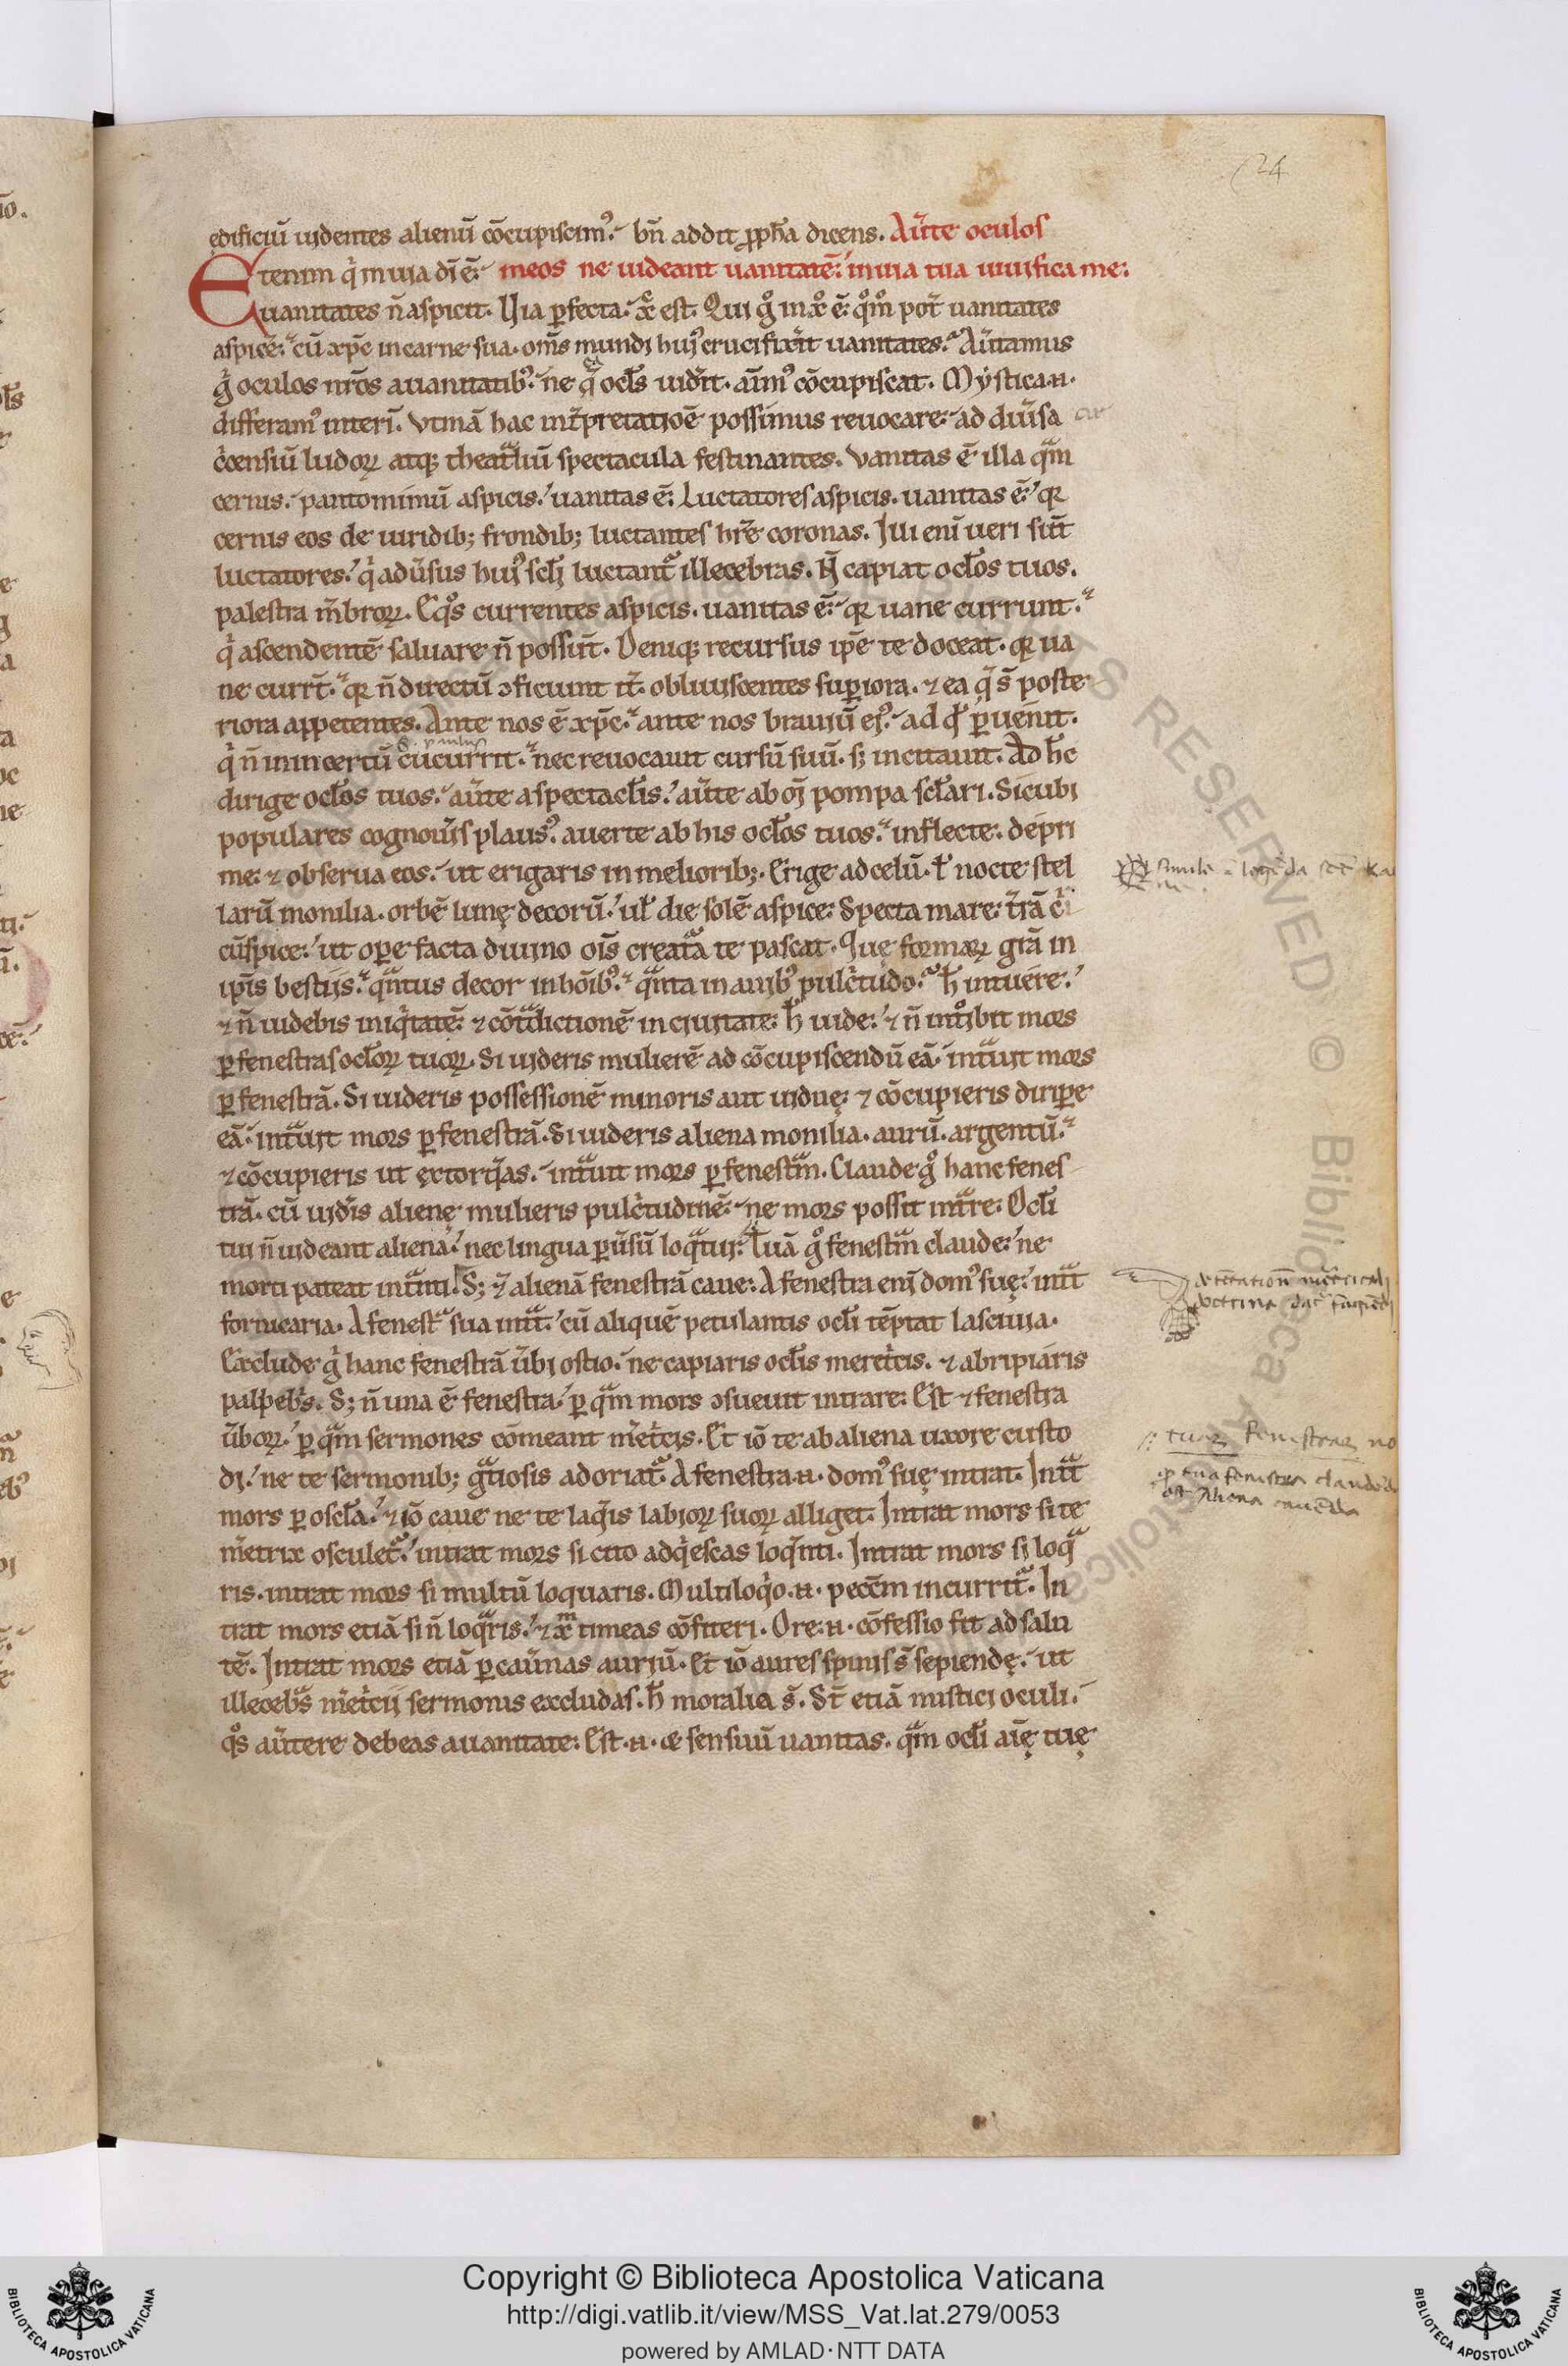 24
ędificiū uidentes alienū cōcupiscim᷒. bn̄ addit ꝓpħa dicens. Au̾te oculos
Etenim q̇ in uia dn̄i ē. meos ne uideant uanitatē. in uia tua uiuifica me:
uanitates n̄ aspicit. Via ꝑfecta. xp̄c est. Qui gͦ in xͦ ē. qͦmͦ pot̄ uanitates
aspicē. cū xp̄c in carne sua. om̄s mundi hui᷒ crucifixit̾ uanitates. Au̾tamus
gͦ oculos nr̄os a uanitatib᷒. ne qᷓ ocl̄s uid̾it. anim᷒ cōcupiscat. Mystica .n.
differam᷒ interī. Vtinā hac int̾pretatiōē possimus reuocare. ad diu̾sa
c̾censiū ludoꝝ atq; theatᷓliū spectacula festinantes. Vanitas ē illa qᷓm
cernis. pantomimū aspicis. uanitas ē. Luctatores aspicis. uanitas ē. qꝛ
cernis eos de uiridib; frondib; luctantes hr̄e coronas. Illi enī ueri sūt
luctatores. q̇ adu̾sus hui᷒ scl̄i luctantᷓ illecebras. N̄ capiat ocl̄os tuos.
palestra mēbroꝝ. Eqͦs currentes aspicis. uanitas ē. qꝛ uane currunt.
q̇ ascendentē saluare n̄ possūt. Deniq; recursus ip̄e te doceat. qꝛ ua
ne curr̄t. qꝛ n̄ directū ꝯficiunt it̾. obliuiscentes suꝑiora. ⁊ ea q̄ s̄ poste
riora appetentes. Ante nos ē xp̄c. ante nos brauiū ei᷒. ad qd̄ ꝑuenit.
s. paulus
q̇ n̄ in incertū cucurrit. nec reuocauit cursū suū. s; incitauit. Ad h̄c
dirige ocl̄os tuos. au̾te a spectacl̄is. au̾te ab oī pompa scl̄ari. Sicubi
populares cognou̾is plaus᷒. auerte ab his ocl̄os tuos. inflecte. depri
me. ⁊ obserua eos. ut erigaris in meliorib;. Erige ad celū. ł nocte stel
larū monilia. orbē lunę decorū. uł die solē aspice. Specta mare. t̾rā c̾
cūspice. ut oꝑe facta diuino oīs creatᷓa te pascat. Quę formaꝝ grā in
ip̄is bestiis. qᷓntus decor in hōib᷒. qᷓnta in auib᷒ pulc̾tudo. h̄ intuere.
⁊ n̄ uidebis iniq̇tatē. ⁊ cōtᷓdictionē in ciuitate. h̄ uide. ⁊ n̄ intͦibit mors
ꝑ fenestras ocl̄oꝝ tuoꝝ. Si uideris mulierē ad cōcupiscendū eā. intᷓuit mors
ꝑ fenestrā. Si uideris possessionē minoris aut uiduę. ⁊ cōcupieris diriꝑe
eā. intᷓuit mors ꝑ fenestrā. Si uideris aliena monilia. aurū. argentū.
⁊ cōcupieris ut extorq̄as. intᷓuit mors ꝑ fenestᷓm. Claude gͦ hanc fenes
trā. cū uid̾is alienę mulieris pulc̾tudinē. ne mors possit intᷓre. Ocl̄i
tui n̄ uideant alienā. nec lingua ꝑu̾sū loqᷓtur. Tuā gͦ fenestᷓm claude. ne
morti pateat intᷓnti. S; ⁊ alienā fenestrā caue. A fenestra enī dom᷒ suę. intᷓt
fornicaria. A fenestᷓ sua intᷓt. cū aliquē petulantis ocl̄i tēptat lasciuia.
Exclude gͦ hanc fenestrā u̾bi ostio. ne capiaris ocl̄is meret̾cis. ⁊ abripiaris
palpeb̾s. S; n̄ una ē fenestra. ꝑ qᷓm mors ꝯsueuit intrare. Est ⁊ fenestra
u̾boꝝ. ꝑ qᷓm sermones cōmeant m̾et̾cis. Et iō te ab aliena uxore custo
di. ne te sermonib; gᷓtiosis adoriatᷓ. A fenestra .n. dom᷒ suę intrat. Intᷓt
mors ꝑ oscl̄a. ⁊ iō caue ne te laq̄is labioꝝ suoꝝ alliget. Intrat mors si te
m̾etrix osculetᷓ. intrat mors si cito adq̇escas loq̄nti. Intrat mors si loqᷓ
ris. intrat mors si multū loquaris. Multiloq̇o .n. pecc̄m incurritᷓ. In
trat mors etiā si n̄ loqᷓris. ⁊ xᵐ timeas cōfiteri. Ore .n. cōfessio fit ad salu
tē. Intrat mors etiā ꝑ cau̾nas auriū. Et iō aures spinis s̄ sepiendę. ut
illecebᷓs m̾et̾cii sermonis excludas. h̄ moralia s̄. St̄ etiā mistici oculi.
qͦs au̾tere debeas a uanitate. Est .n. ⁊ sensuū uanitas. qᷓm ocl̄i aīę tuę
Copyright © Biblioteca Apostolica Vaticana
http://digi.vatlib.it/view/MSS_Vat.lat.279/0053
powered by AMLAD·NTT DATA
BIBLIOTECA APOSTOLICA VATICANA
BIBLIOTECA APOSTOLICA VATICANA